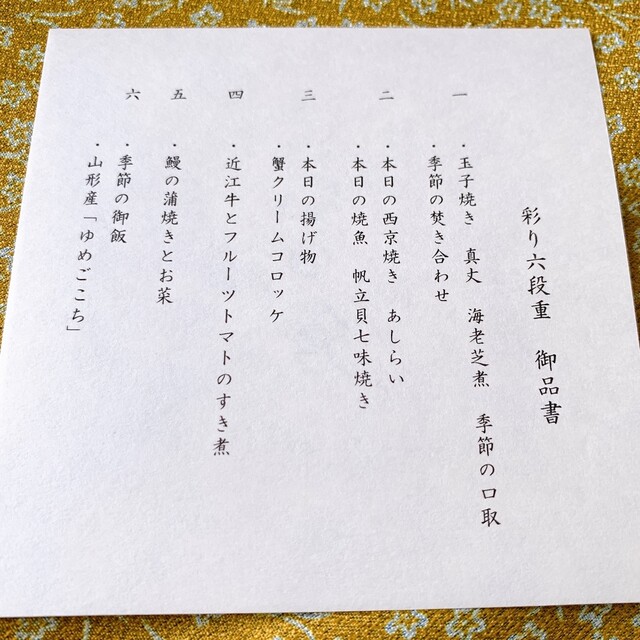 彩り六段重　御品書
一
・玉子焼き　真丈　海老芝煮　季節の口取
・季節の焚き合わせ
二
・本日の西京焼き　あしらい
・本日の焼魚　帆立貝七味焼き
三
・本日の揚げ物
・蟹クリームコロッケ
四
・近江牛とフルーツトマトのすき煮
五
・鰻の蒲焼きとお菜
六
・季節の御飯
・山形産「ゆめごこち」